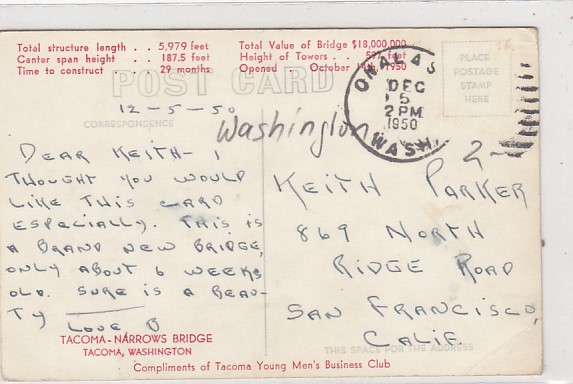 Total structure length . . 5,979 feet
Center span height . . 187.5 feet
Time to construct . . . 29 months
Total Value of Bridge $18,000,000
Height of Towers . . 507 feet
Opened . . October 14th, 1950
POST CARD
PLACE
POSTAGE
STAMP
HERE
ONALAS
DEC
5
2 PM
1950
WASH.
12-5-50
CORRESPONDENCE
Washington
2-
DEAR KEITH- I
THOUGHT YOU WOULD
LIKE THIS CARD
ESPECIALLY. THIS IS
A BRAND NEW BRIDGE,
ONLY ABOUT 6 WEEKS
OLD. SURE IS A BEAU-
TY
LOVE,
KEITH PARKER
869 NORTH
RIDGE ROAD
SAN FRANCISCO,
CALIF.
TACOMA-NARROWS BRIDGE
TACOMA, WASHINGTON
THIS SPACE FOR THE ADDRESS
Compliments of Tacoma Young Men's Business Club